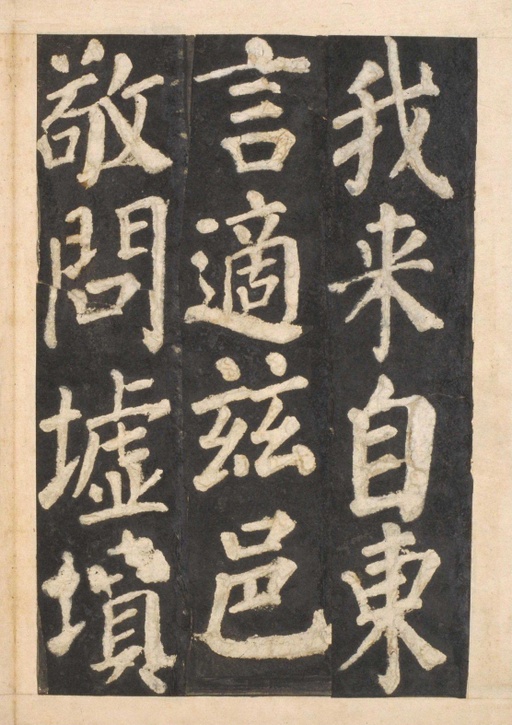 我来自東
言適兹邑
敬問墟墳